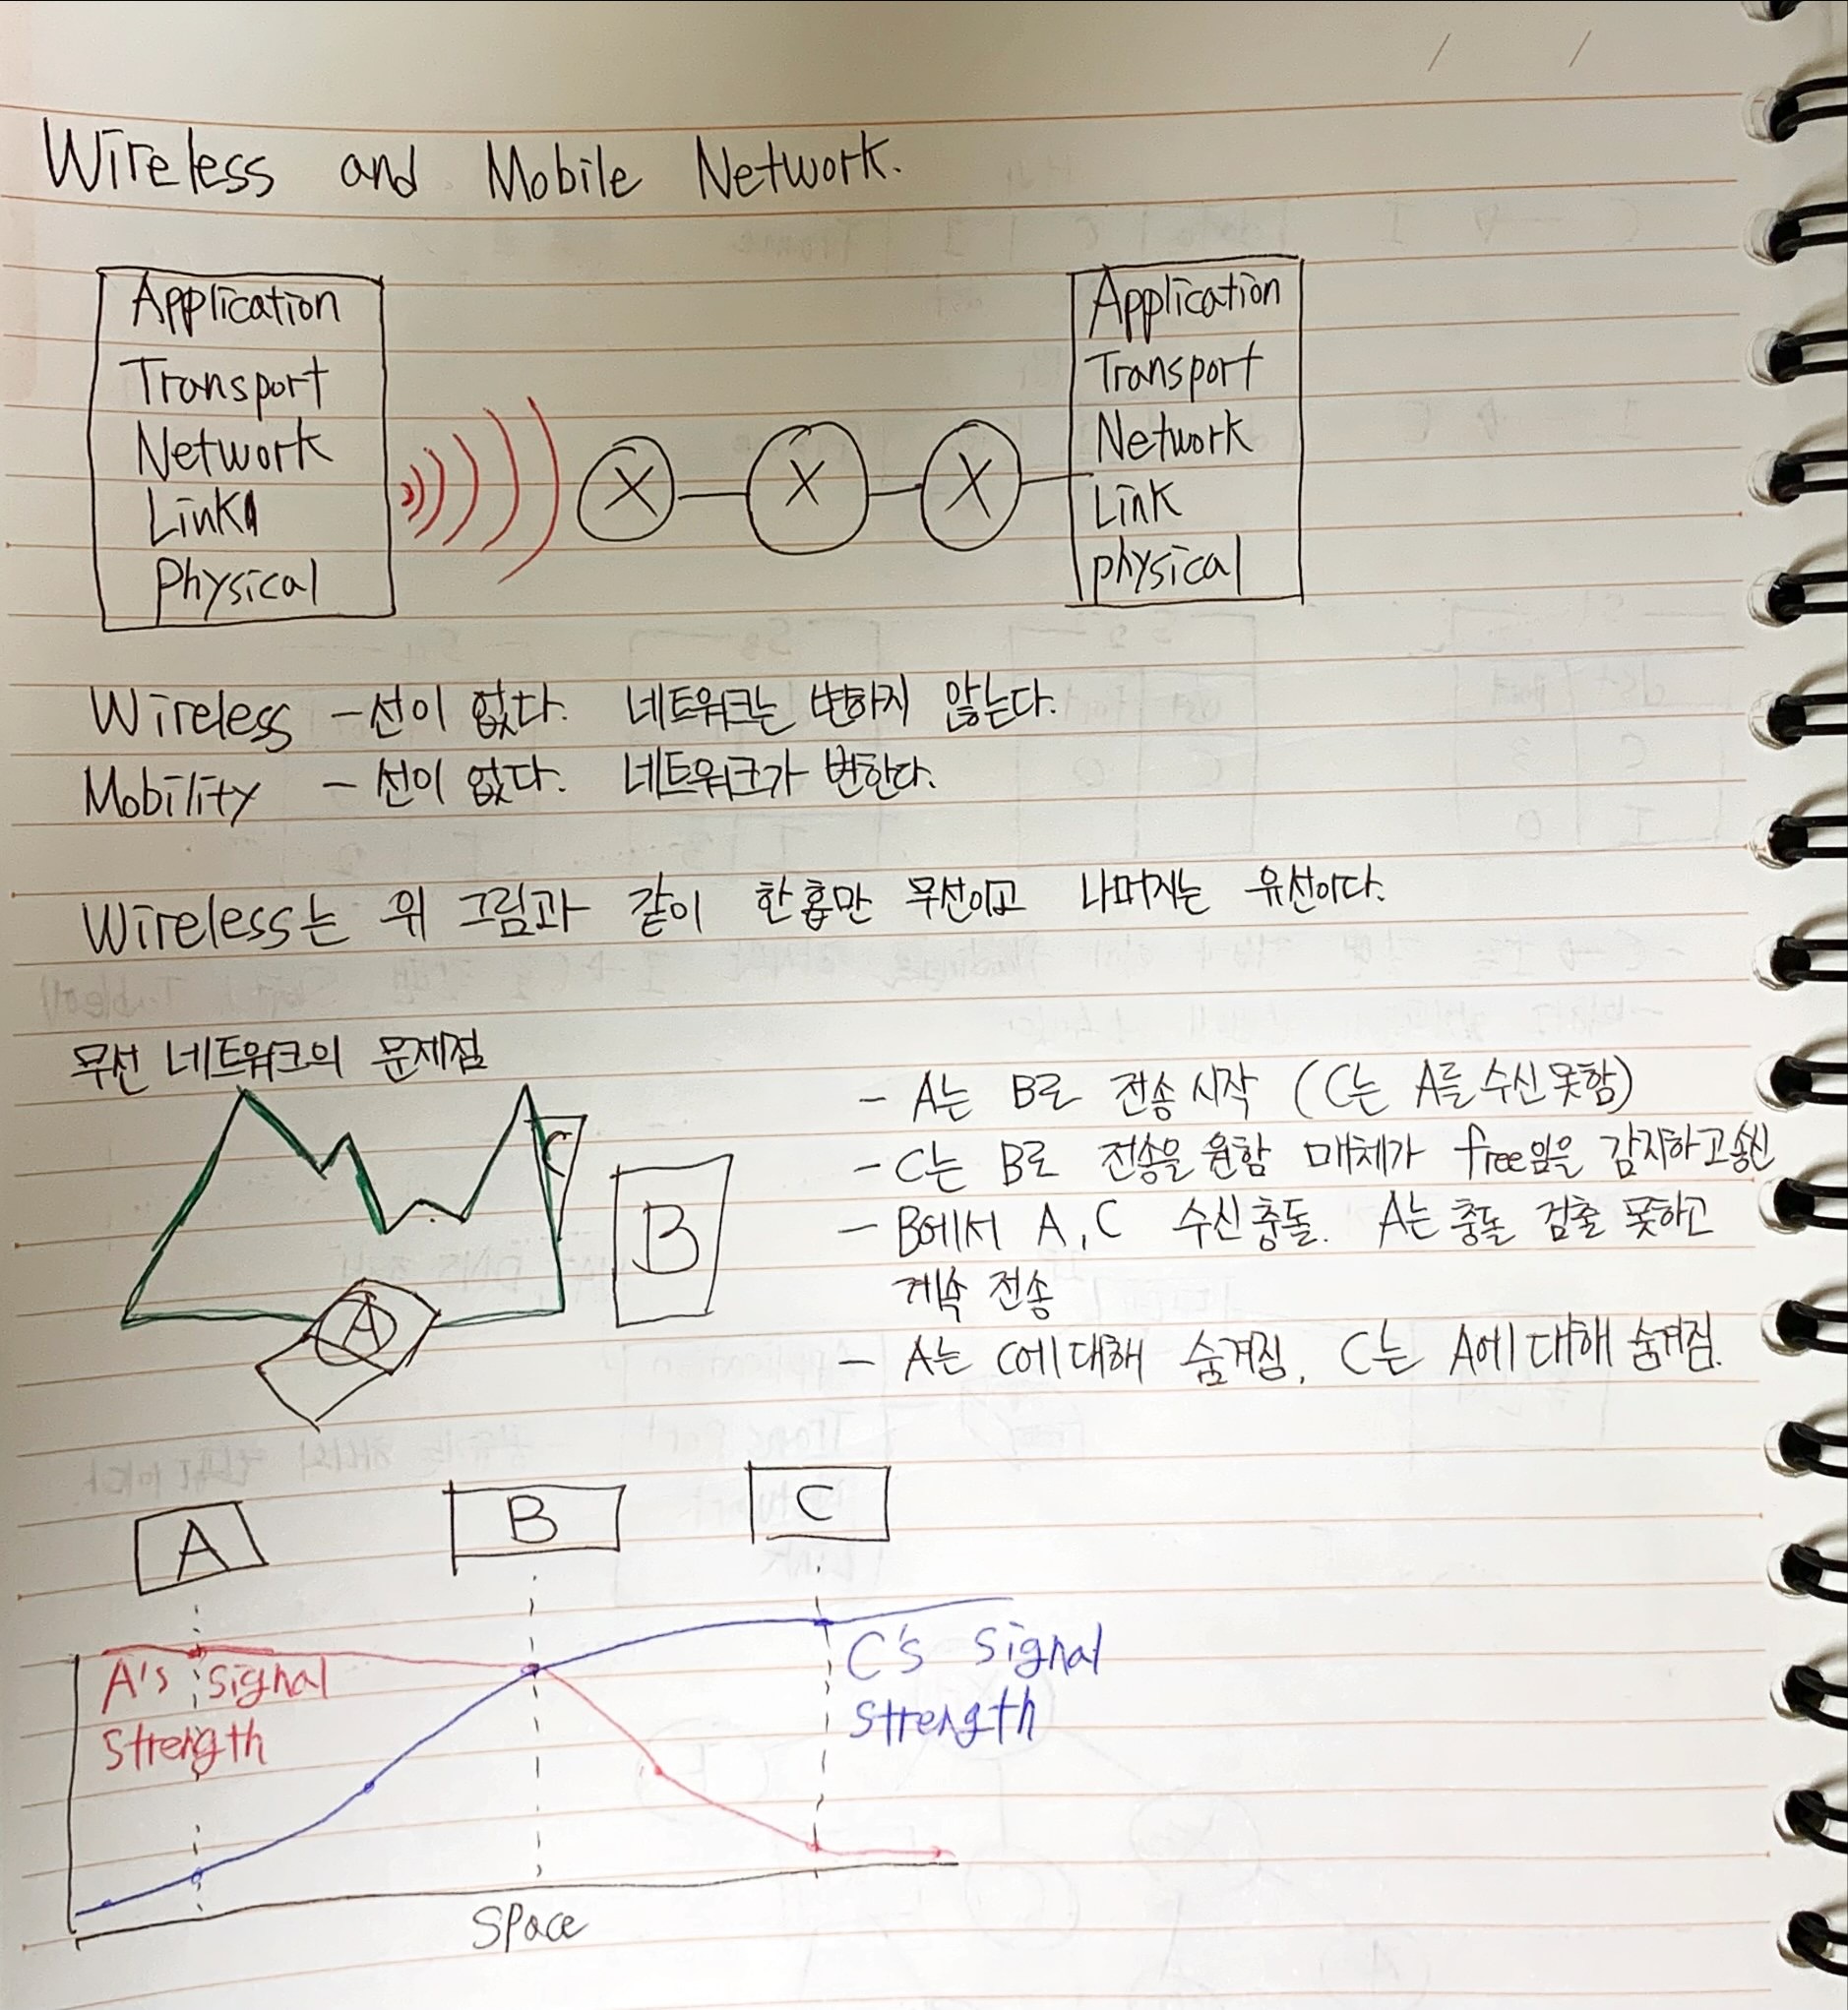 Wireless and Mobile Network.
Application
Transport
Network
Link
Physical
X X X
Application
Transport
Network
Link
physical
Wireless - 선이 없다. 네트워크는 변하지 않는다.
Mobility - 선이 없다. 네트워크가 변한다.
Wireless는 위 그림과 같이 한 홉만 무선이고 나머지는 유선이다.
무선 네트워크의 문제점
C
B
A
- A는 B로 전송 시작 (C는 A를 수신 못함)
- C는 B로 전송을 원함 매체가 free임을 감지하고 송신
- B에서 A, C 수신 충돌. A는 충돌 검출 못하고
계속 전송
- A는 C에 대해 숨겨짐, C는 A에 대해 숨겨짐.
A B C
A's signal
strength
C's signal
strength
space